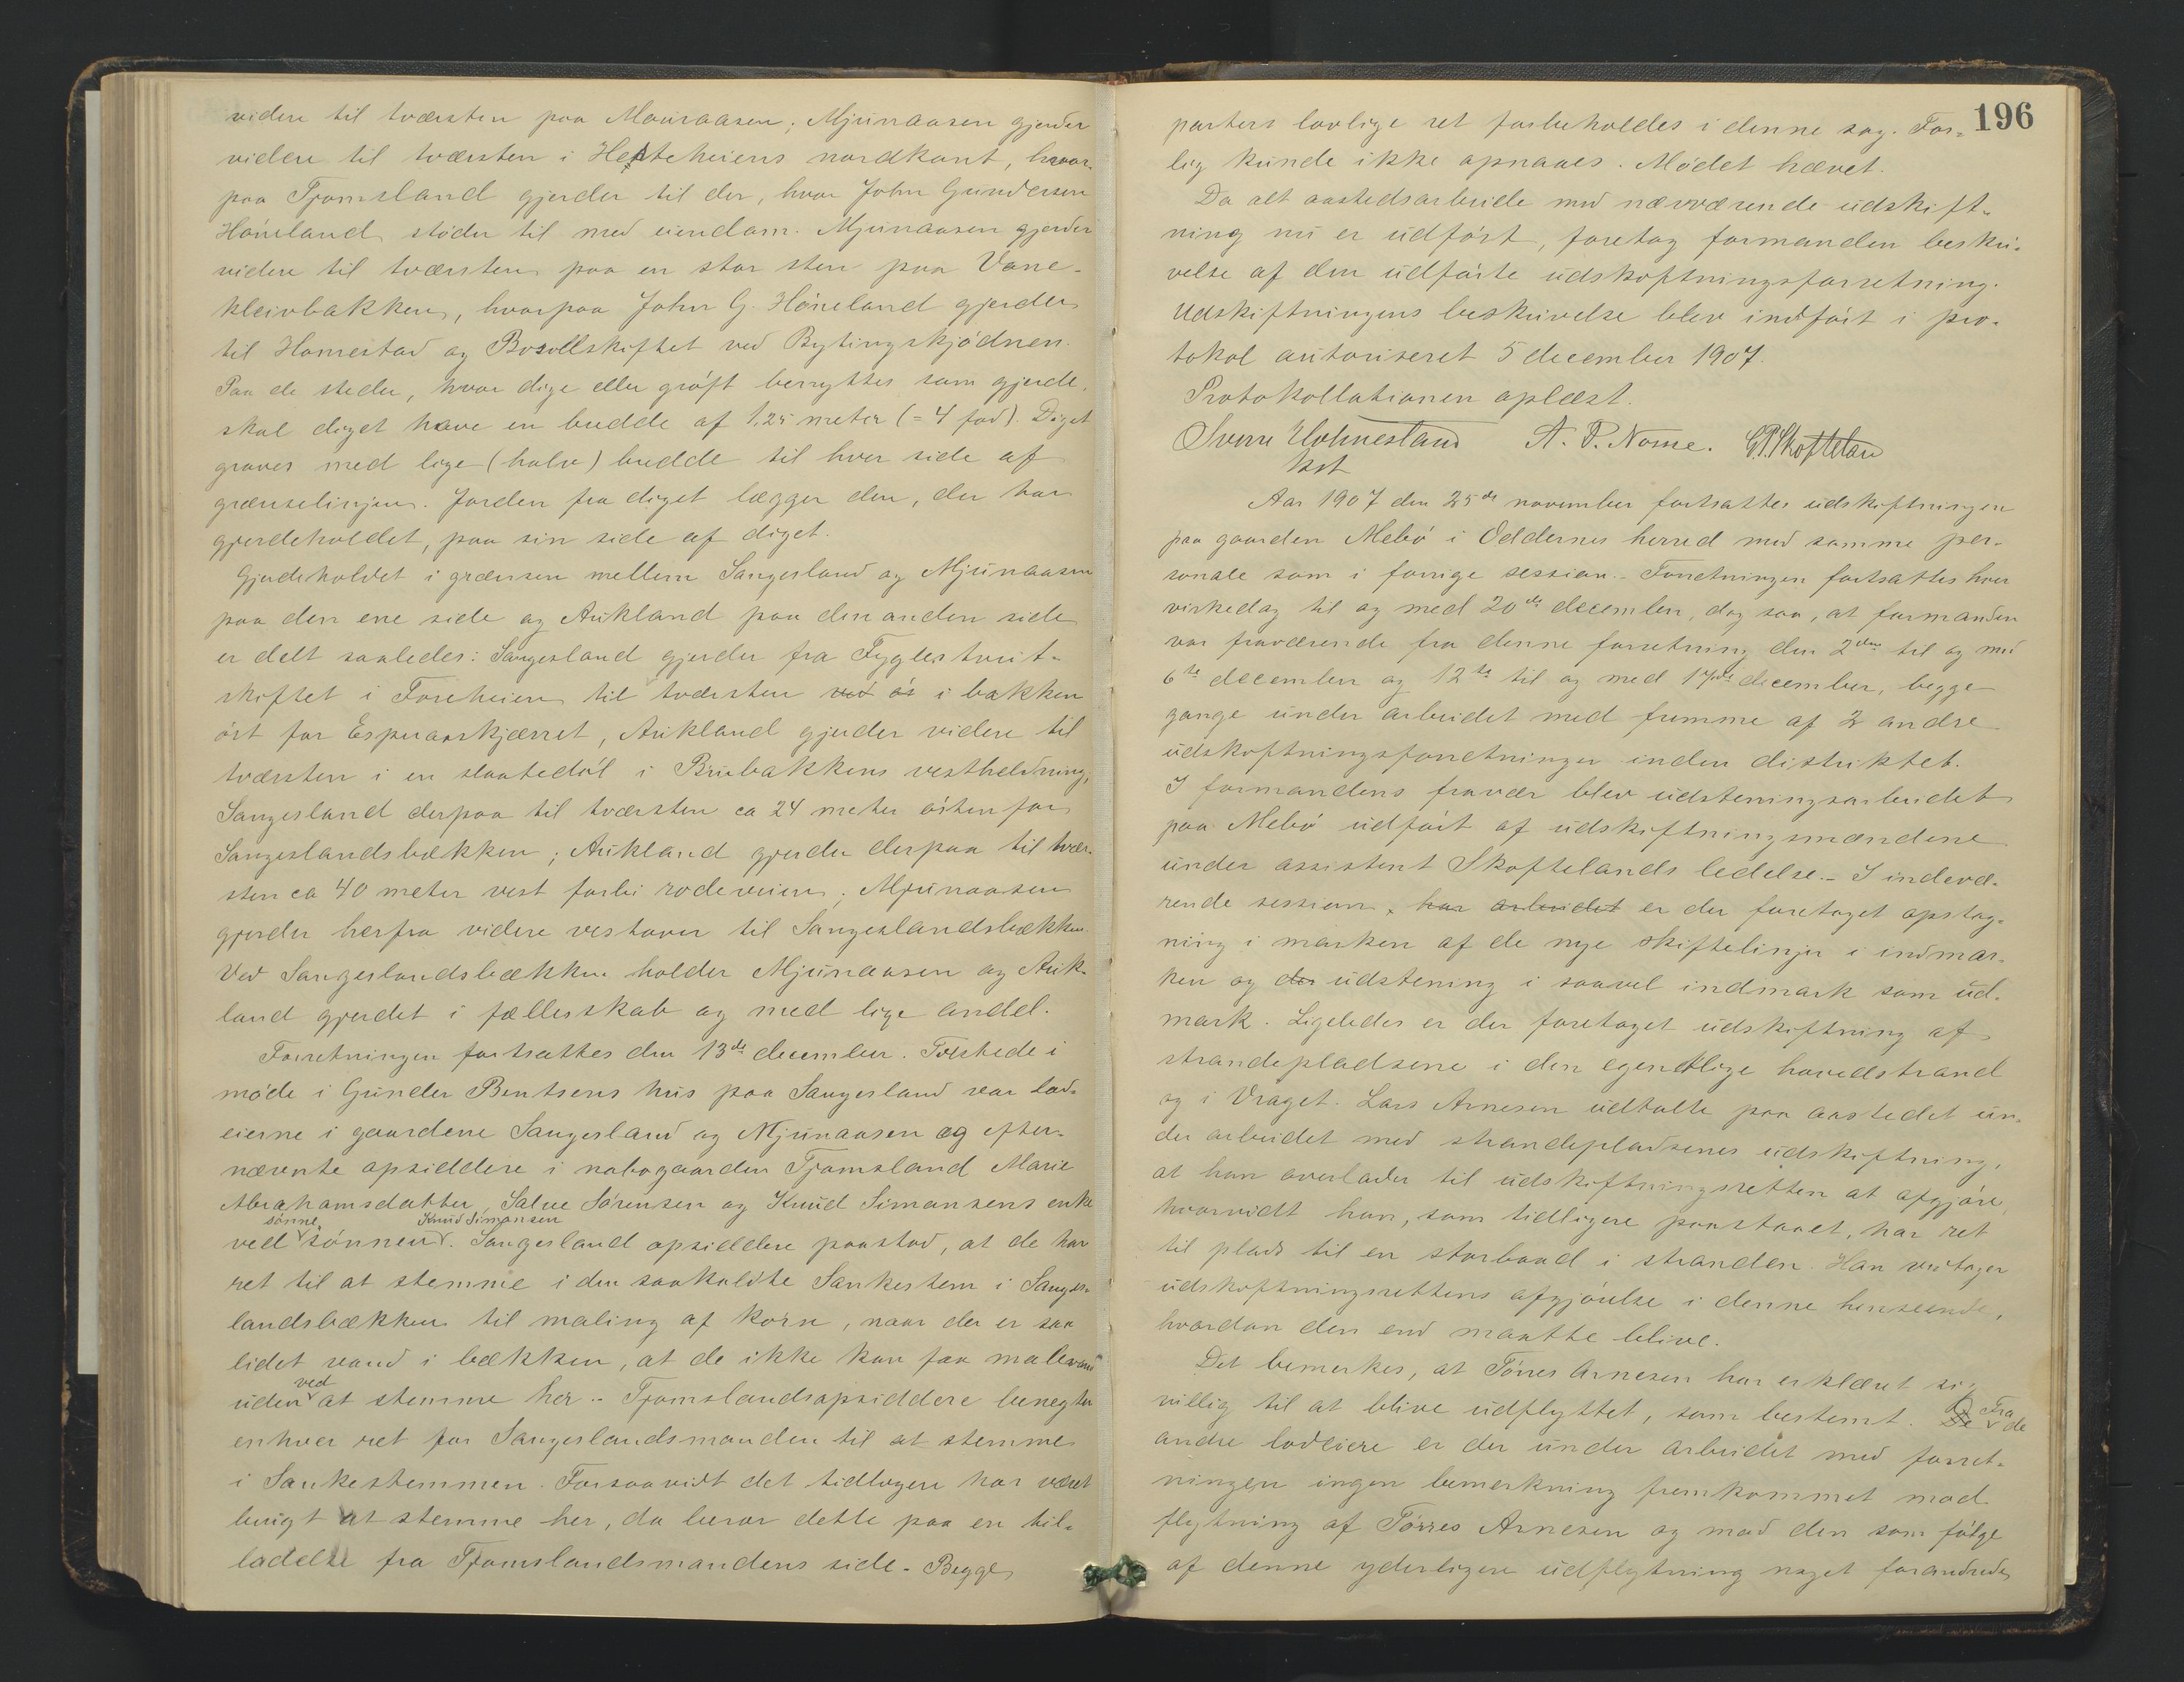 videre til tværsten paa Mauraasen; Mjunaasen gjerder
videre til tværsten i Hesteheiens nordkant, hvor-
paa Tjomsland gjerder til der, hvor John Gundersen
Høneland støder til med eiendom. Mjunaasen gjerder
videre til tværsten paa en stor sten paa Vane-
kleivbakken, hvorpaa John G. Høneland gjerder
til Homestad og Brovollskiftet ved Bytingskjødnen.
Paa de steder, hvor dige eller grøft benyttes som gjerde,
skal diget have en bredde af 1,25 meter (= 4 fod) Diget
graves med lige (halv) bredde til hver side af
grænselinjen. Jorden fra diget lægger den, der har
gjerdeholdet, paa sin side af diget.
Gjerdeholdet i grænsen mellem Sangesland og Mjunaasen
paa den ene side og Aukland paa den anden side
er delt saaledes: Sangesland gjerder fra Fyglestveit-
skiftet i Foreheien til tværsten ved øs i bakken
øst for Esperaaskjærret, Aukland gjerder videre til
tværsten i en slaatedøl i Bruebakkens vestheldning;
Sangesland derpaa til tværsten ca 24 meter østen for
Sangeslandsbækken; Aukland gjerder derpaa til tvær-
sten ca 40 meter vest forbi rodeveien; Mjunaasen
gjerder herfra videre vestover til Sangeslandsbækken.
Ved Sangeslandsbækken holder Mjunaasen og Auk-
land gjerdet i fællesskab og med lige andel.
Forretningen fortsattes den 13de december. Tilstede i
møde i Gunder Bentsens hus paa Sangesland var lod-
eierne i gaardene Sangesland og Mjunaasen og efter-
nævnte opsiddere i nabogaarden Tjomsland Marie
Abrahamsdatter, Salve Sørensen og Knud Simonsens enke
sønne Knud Simonsen
ved sønnen. Sangesland opsiddere paastod, at de har
ret til at stemme i den saakaldte Sankestem i Sanges-
landsbækken til maling af korn, naar der er saa
lidet vand i bækken, at de ikke kan faa malevand
ved
uden at stemme her.- Tjomslandsopsiddere benegter
enhver ret for Sangeslandsmanden til at stemme
i Sankestemmen. Forsaavidt det tidligere har været
brugt at stemme her, da beror dette paa en til-
ladelse fra Tjomslandsmandens side.- Begge
196
parters lovlige ret forbeholdes i denne sag. For-
lig kunde ikke opnaaes. Mødet hævet.
Da alt aastedsarbeide med nærværende udskift-
ning nu er udført, foretog formanden beskri-
velse af den udførte udskiftningsforretning.
Udskiftningens beskrivelse blev indført i pro-
tokol autoriseret 5 december 1907.
Protokollationen oplæst.
Sverre Holmesland A. P. Nome. G. P. Skofteland
kst
Aar 1907 den 25de november fortsattes udskiftningen
paa gaarden Mebø i Oddernes herred med samme per-
sonale som i forrige session.- Forretningen fortsattes hver
virkedag til og med 20de december, dog saa, at formanden
var fraværende fra denne forretning den 2den til og med
6te december og 12te til og med 17de december, begge
gange under arbeidet med fremme af 2 andre
udskiftningsforretninger inden distriktet.
I formandens fravær blev udsteningsarbeidet
paa Mebø udført af udskiftningsmændene
under assistent Skoftelands ledelse.- I indevæ-
rende session, har arbeidet er der foretaget opstag-
ning i marken af de nye skiftelinjer i indmar-
ken og der udstening i saavel indmark som ud-
mark. Ligeledes er der foretaget udskiftning af
strandepladsene i den egentlige hovedstrand
og i Vraget. Lars Arnesen udtalte paa aastedet un-
der arbeidet med strandepladsenes udskiftning,
at han overlader til udskiftningsretten at afgjøre,
hvorvidt han, som tidligere paastaaet, har ret
til plads til en storbaad i stranden. Han vedtager
udskiftningsrettens afgjørelse i denne henseende,
hvordan den end maatte blive.
Det bemerkes, at Tørres Arnesen har erklæret sig
villig til at blive udflyttet, som bestemt. De Fra de
andre lodeiere er der under arbeidet med forret-
ningen ingen bemerkning fremkommet mod
flytning af Tørres Arnesen og mod den som følge
af denne yderligere udflytning noget forandrede